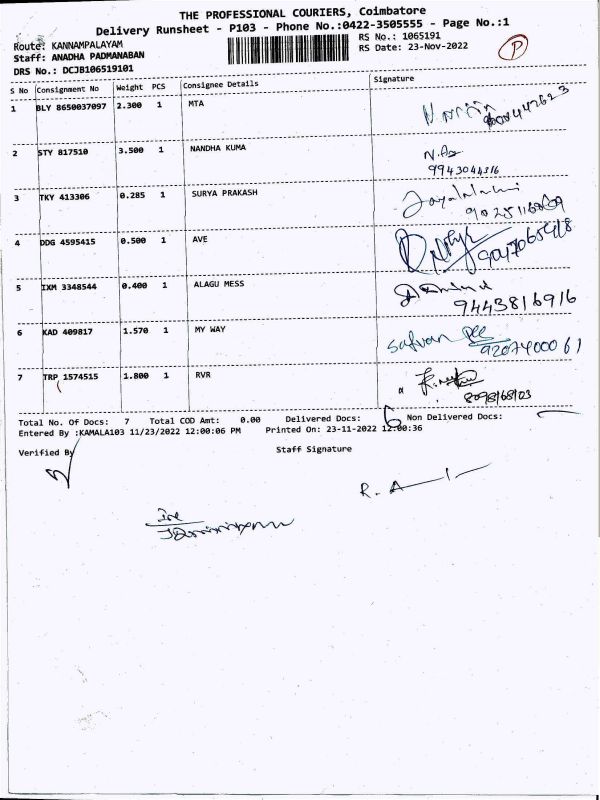 THE PROFESSIONAL COURIERS, Coimbatore
Delivery Runsheet - P103 - Phone No.:0422-3505555 - Page No.:1
Route: KANNAMPALAYAM RS No.: 1065191
Staff: ANADHA PADMANABAN RS Date: 23-Nov-2022 P
DRS No.: DCJB106519101
S No Consignment No Weight PCS Consignee Details Signature
1 BLY 8650037097 2.300 1 MTA
2 STY 817510 3.500 1 NANDHA KUMA
9943044316
3 TKY 413306 0.285 1 SURYA PRAKASH
4 DDG 4595415 0.500 1 AVE
5 IXM 3348544 0.400 1 ALAGU MESS
9443816916
6 KAD 409817 1.570 1 MY WAY Safvan
9207400061
7 TRP 1574515 1.800 1 RVR
Total No. Of Docs: 7 Total COD Amt: 0.00 Delivered Docs: 6 Non Delivered Docs:
Entered By :KAMALA103 11/23/2022 12:00:06 PM Printed On: 23-11-2022 12:00:36
Verified By Staff Signature
R. A